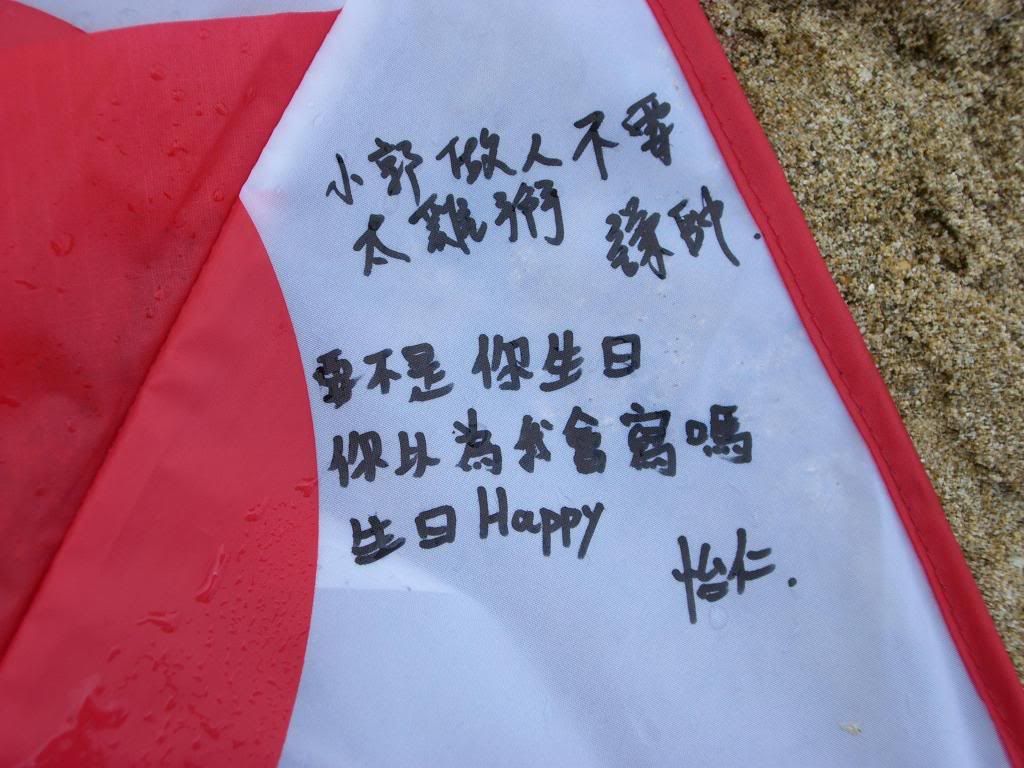 小郭做人不要
太雞粥
要不是你生日
你以為我會寫嗎
生日Happy
怡仁.